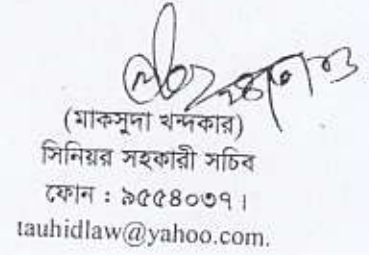 (মাকসুদা খন্দকার)
সিনিয়র সহকারী সচিব
ফোন : ৯৫৫৪০৩৭।
tauhidlaw@yahoo.com.